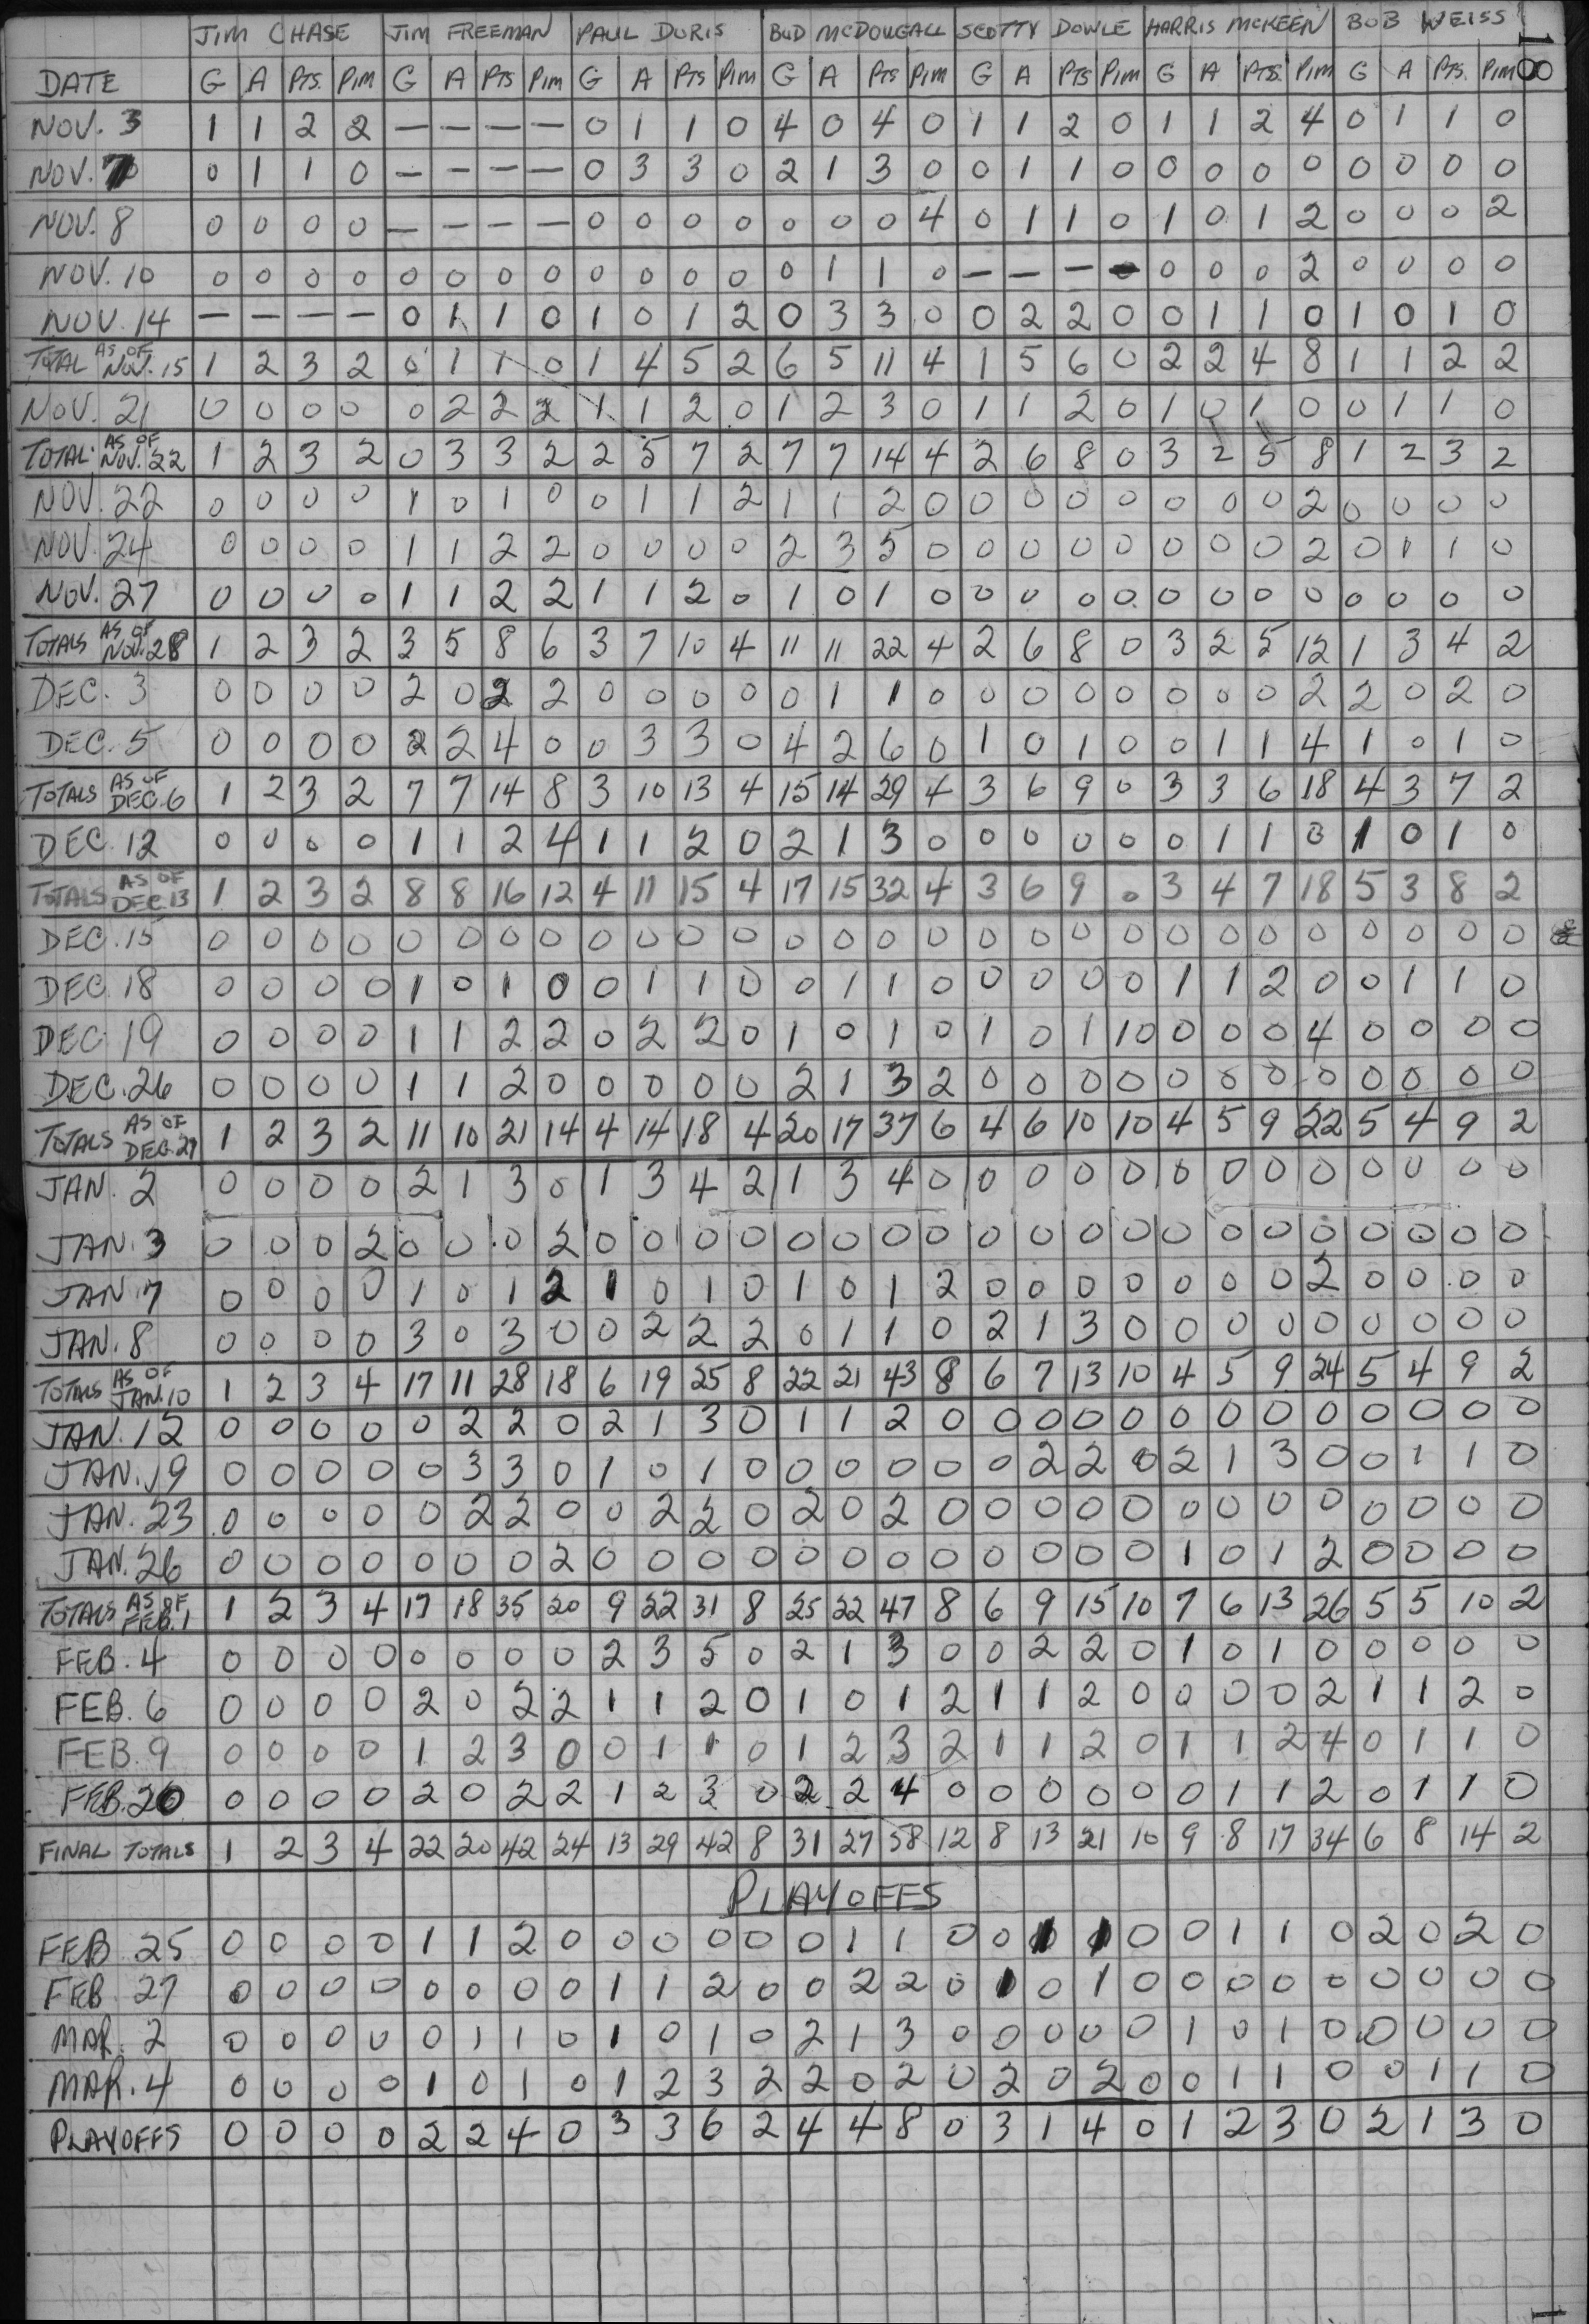 JIM CHASE JIM FREEMAN PAUL DORIS BUD MCDOUGALL SCOTTY DOWLE HARRIS MCKEEN BOB WEISS 18
DATE G A PTS. PIM G A PTS PIM G A PTS PIM G A PTS PIM G A PTS PIM G A PTS. PIM G A PTS. PIM
NOV. 3 1 1 2 2 — — — — 0 1 1 0 4 0 4 0 1 1 2 0 1 1 2 4 0 1 1 0
NOV. 7 0 1 1 0 — — — — 0 3 3 0 2 1 3 0 0 1 1 0 0 0 0 0 0 0 0 0
NOV. 8 0 0 0 0 — — — — 0 0 0 0 0 0 0 4 0 1 1 0 1 0 1 2 0 0 0 2
NOV. 10 0 0 0 0 0 0 0 0 0 0 0 0 0 1 1 0 — — — — 0 0 0 2 0 0 0 0
NOV. 14 — — — — 0 1 1 0 1 0 1 2 0 3 3 0 0 2 2 0 0 1 1 0 1 0 1 0
TOTAL AS OF NOV. 15 1 2 3 2 0 1 1 0 1 4 5 2 6 5 11 4 1 5 6 0 2 2 4 8 1 1 2 2
NOV. 21 0 0 0 0 0 2 2 2 1 1 2 0 1 2 3 0 1 1 2 0 1 0 1 0 0 1 1 0
TOTAL AS OF NOV. 22 1 2 3 2 0 3 3 2 2 5 7 2 7 7 14 4 2 6 8 0 3 2 5 8 1 2 3 2
NOV. 22 0 0 0 0 1 0 1 0 0 1 1 2 1 1 2 0 0 0 0 0 0 0 0 2 0 0 0 0
NOV. 24 0 0 0 0 1 1 2 2 0 0 0 0 2 3 5 0 0 0 0 0 0 0 0 2 0 1 1 0
NOV. 27 0 0 0 0 1 1 2 2 1 1 2 0 1 0 1 0 0 0 0 0 0 0 0 0 0 0 0 0
TOTALS AS OF NOV. 28 1 2 3 2 3 5 8 6 3 7 10 4 11 11 22 4 2 6 8 0 3 2 5 12 1 3 4 2
DEC. 3 0 0 0 0 2 0 2 2 0 0 0 0 0 1 1 0 0 0 0 0 0 0 0 2 2 0 2 0
DEC. 5 0 0 0 0 2 2 4 0 0 3 3 0 4 2 6 0 1 0 1 0 0 1 1 4 1 0 1 0
TOTALS AS OF DEC. 6 1 2 3 2 7 7 14 8 3 10 13 4 15 14 29 4 3 6 9 0 3 3 6 18 4 3 7 2
DEC. 12 0 0 0 0 1 1 2 4 1 1 2 0 2 1 3 0 0 0 0 0 0 1 1 0 1 0 1 0
TOTALS AS OF DEC. 13 1 2 3 2 8 8 16 12 4 11 15 4 17 15 32 4 3 6 9 0 3 4 7 18 5 3 8 2
DEC. 15 0 0 0 0 0 0 0 0 0 0 0 0 0 0 0 0 0 0 0 0 0 0 0 0 0 0 0 0
DEC. 18 0 0 0 0 1 0 1 0 0 1 1 0 0 1 1 0 0 0 0 0 1 1 2 0 0 1 1 0
DEC. 19 0 0 0 0 1 1 2 2 0 2 2 0 1 0 1 0 1 0 1 10 0 0 0 4 0 0 0 0
DEC. 26 0 0 0 0 1 1 2 0 0 0 0 0 2 1 3 2 0 0 0 0 0 0 0 0 0 0 0 0
TOTALS AS OF DEC. 29 1 2 3 2 11 10 21 14 4 14 18 4 20 17 37 6 4 6 10 10 4 5 9 22 5 4 9 2
JAN. 2 0 0 0 0 2 1 3 0 1 3 4 2 1 3 4 0 0 0 0 0 0 0 0 0 0 0 0 0
JAN. 3 0 0 0 2 0 0 0 2 0 0 0 0 0 0 0 0 0 0 0 0 0 0 0 0 0 0 0 0
JAN 7 0 0 0 0 1 0 1 2 1 0 1 0 1 0 1 2 0 0 0 0 0 0 0 2 0 0 0 0
JAN. 8 0 0 0 0 3 0 3 0 0 2 2 2 0 1 1 0 2 1 3 0 0 0 0 0 0 0 0 0
TOTALS AS OF JAN. 10 1 2 3 4 17 11 28 18 6 19 25 8 22 21 43 8 6 7 13 10 4 5 9 24 5 4 9 2
JAN. 12 0 0 0 0 0 2 2 0 2 1 3 0 1 1 2 0 0 0 0 0 0 0 0 0 0 0 0 0
JAN. 19 0 0 0 0 0 3 3 0 1 0 1 0 0 0 0 0 0 2 2 0 2 1 3 0 0 1 1 0
JAN. 23 0 0 0 0 0 2 2 0 0 2 2 0 2 0 2 0 0 0 0 0 0 0 0 0 0 0 0 0
JAN. 26 0 0 0 0 0 0 0 2 0 0 0 0 0 0 0 0 0 0 0 0 1 0 1 2 0 0 0 0
TOTALS AS OF FEB. 1 1 2 3 4 17 18 35 20 9 22 31 8 25 22 47 8 6 9 15 10 7 6 13 26 5 5 10 2
FEB. 4 0 0 0 0 0 0 0 0 2 3 5 0 2 1 3 0 0 2 2 0 1 0 1 0 0 0 0 0
FEB. 6 0 0 0 0 2 0 2 2 1 1 2 0 1 0 1 2 1 1 2 0 0 0 0 2 1 1 2 0
FEB. 9 0 0 0 0 1 2 3 0 0 1 1 0 1 2 3 2 1 1 2 0 1 1 2 4 0 1 1 0
FEB. 20 0 0 0 0 2 0 2 2 1 2 3 0 2 2 4 0 0 0 0 0 0 1 1 2 0 1 1 0
FINAL TOTALS 1 2 3 4 22 20 42 24 13 29 42 8 31 27 58 12 8 13 21 10 9 8 17 34 6 8 14 2
PLAYOFFS
FEB. 25 0 0 0 0 1 1 2 0 0 0 0 0 0 1 1 0 0 1 1 0 0 1 1 0 2 0 2 0
FEB. 27 0 0 0 0 0 0 0 0 1 1 2 0 0 2 2 0 1 0 1 0 0 0 0 0 0 0 0 0
MAR. 2 0 0 0 0 0 1 1 0 1 0 1 0 2 1 3 0 0 0 0 0 1 0 1 0 0 0 0 0
MAR. 4 0 0 0 0 1 0 1 0 1 2 3 2 2 0 2 0 2 0 2 0 0 1 1 0 0 1 1 0
PLAYOFFS 0 0 0 0 2 2 4 0 3 3 6 2 4 4 8 0 3 1 4 0 1 2 3 0 2 1 3 0